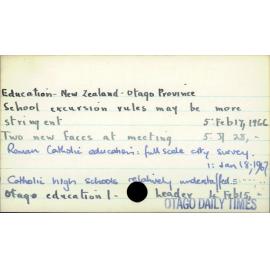 Education - New Zealand - Otago Province
School excursion rules may be more
stringent 5 Feb 17, 1966
Two new faces at meeting 5 Jl 28, -
Roman Catholic education: full scale city survey.
1: Jan 18, 1967
Catholic high schools relatively understaffed =
Otago education 1 - Leader 4 Feb 15,
OTAGO DAILY TIMES